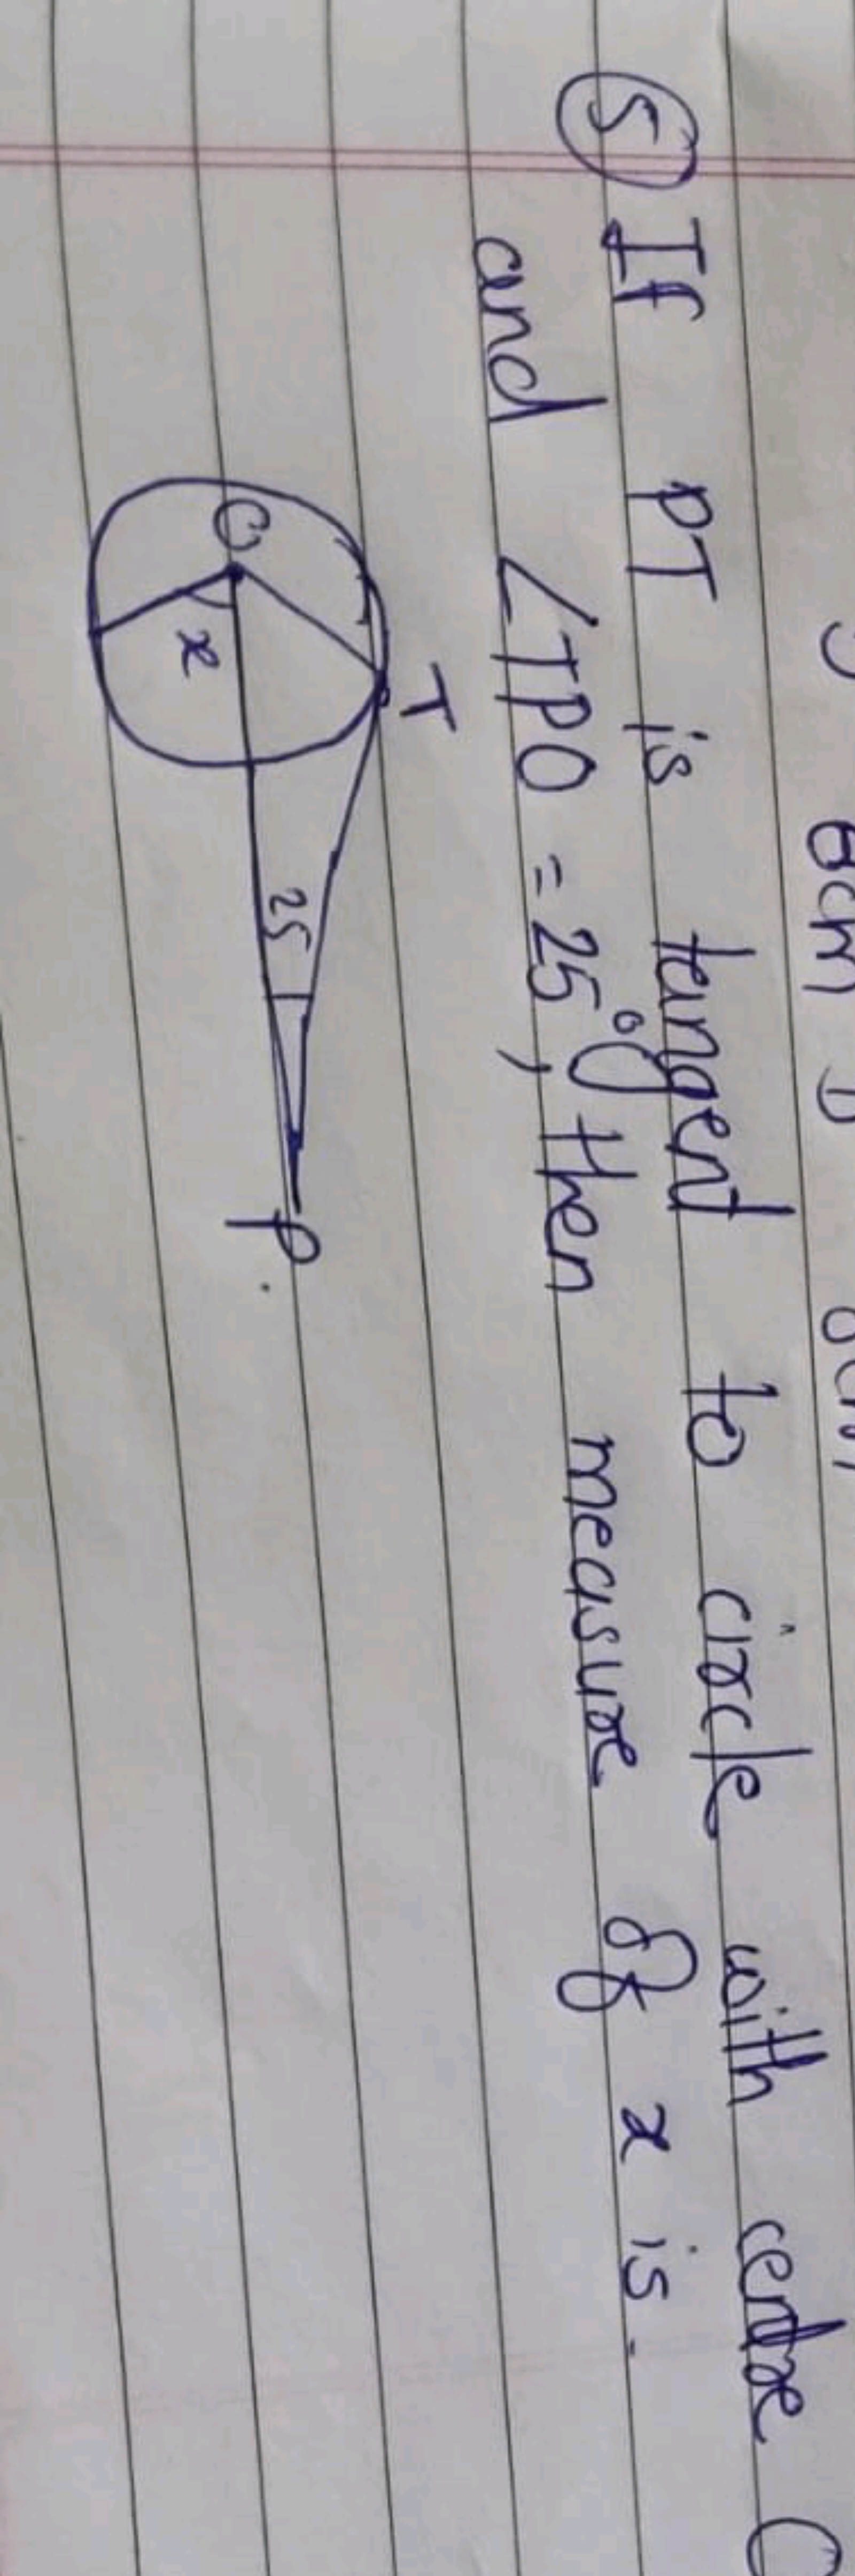 6cm
⑤ If PT is tangent to circle with centre O
and ∠TPO = 25°, then measure of x is.
T
O
x
25
P